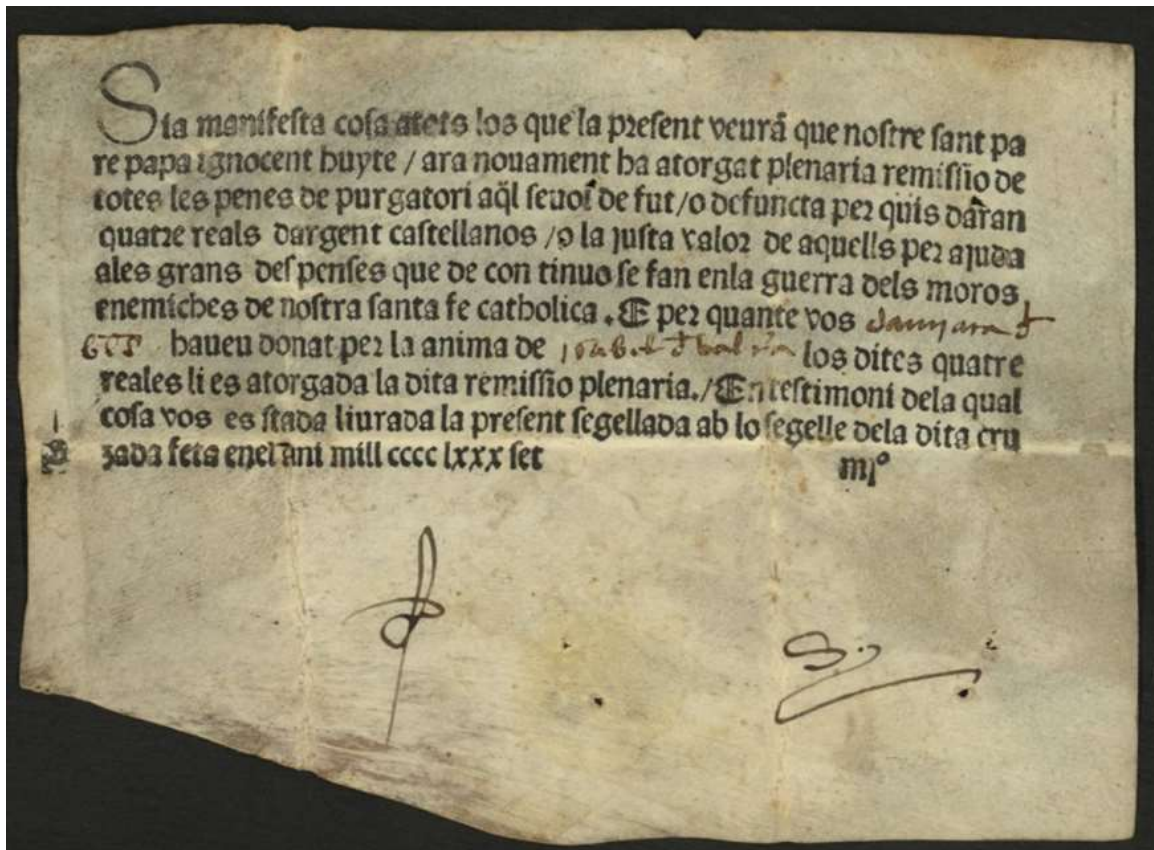 Sia manifesta cosa atots los que la present veurā que nostre sant pa
re papa ignocent huyte / ara nouament ha atorgat plenaria remissio de
totes les penes de purgatori aq̄l de fut / o defuncta per quis daran
quatre reals dargent castellanos / o la justa valor de aquells per ajuda
ales grans despenses que de con tinuo se fan enla guerra dels moros
enemiches de nostra santa fe catholica . E per quante vos
haueu donat per la anima de los dites quatre
reales li es atorgada la dita remissio plenaria. / En testimoni dela qual
cosa vos es stada liurada la present segellada ab lo segelle dela dita cru
zada feta enel ani mill cccc lxxx set